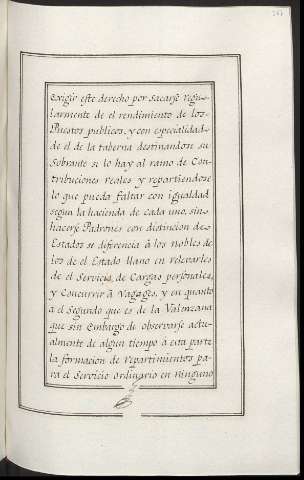 exigir este derecho por sacarse regu-
larmente de el rendimiento de los
Puestos publicos, y con especialidad
de el de la taberna destinandose su
Sobrante si lo hay al ramo de Con-
tribuciones reales y repartiendose
lo que pueda faltar con igualdad
segun la hacienda de cada uno, sin
hacerse Padrones con distincion de
Estados se diferencia â los nobles de
los de el Estado llano en relevarles
de el Servicio de Cargas personales,
y Concurrir â Vagages, y en quanto
â el Segundo que es de la Valenzana
que sin embargo de observarse actu-
almente de algun tiempo â esta parte
la formacion de repartimientos pa-
ra el Servicio ordinario en ninguno